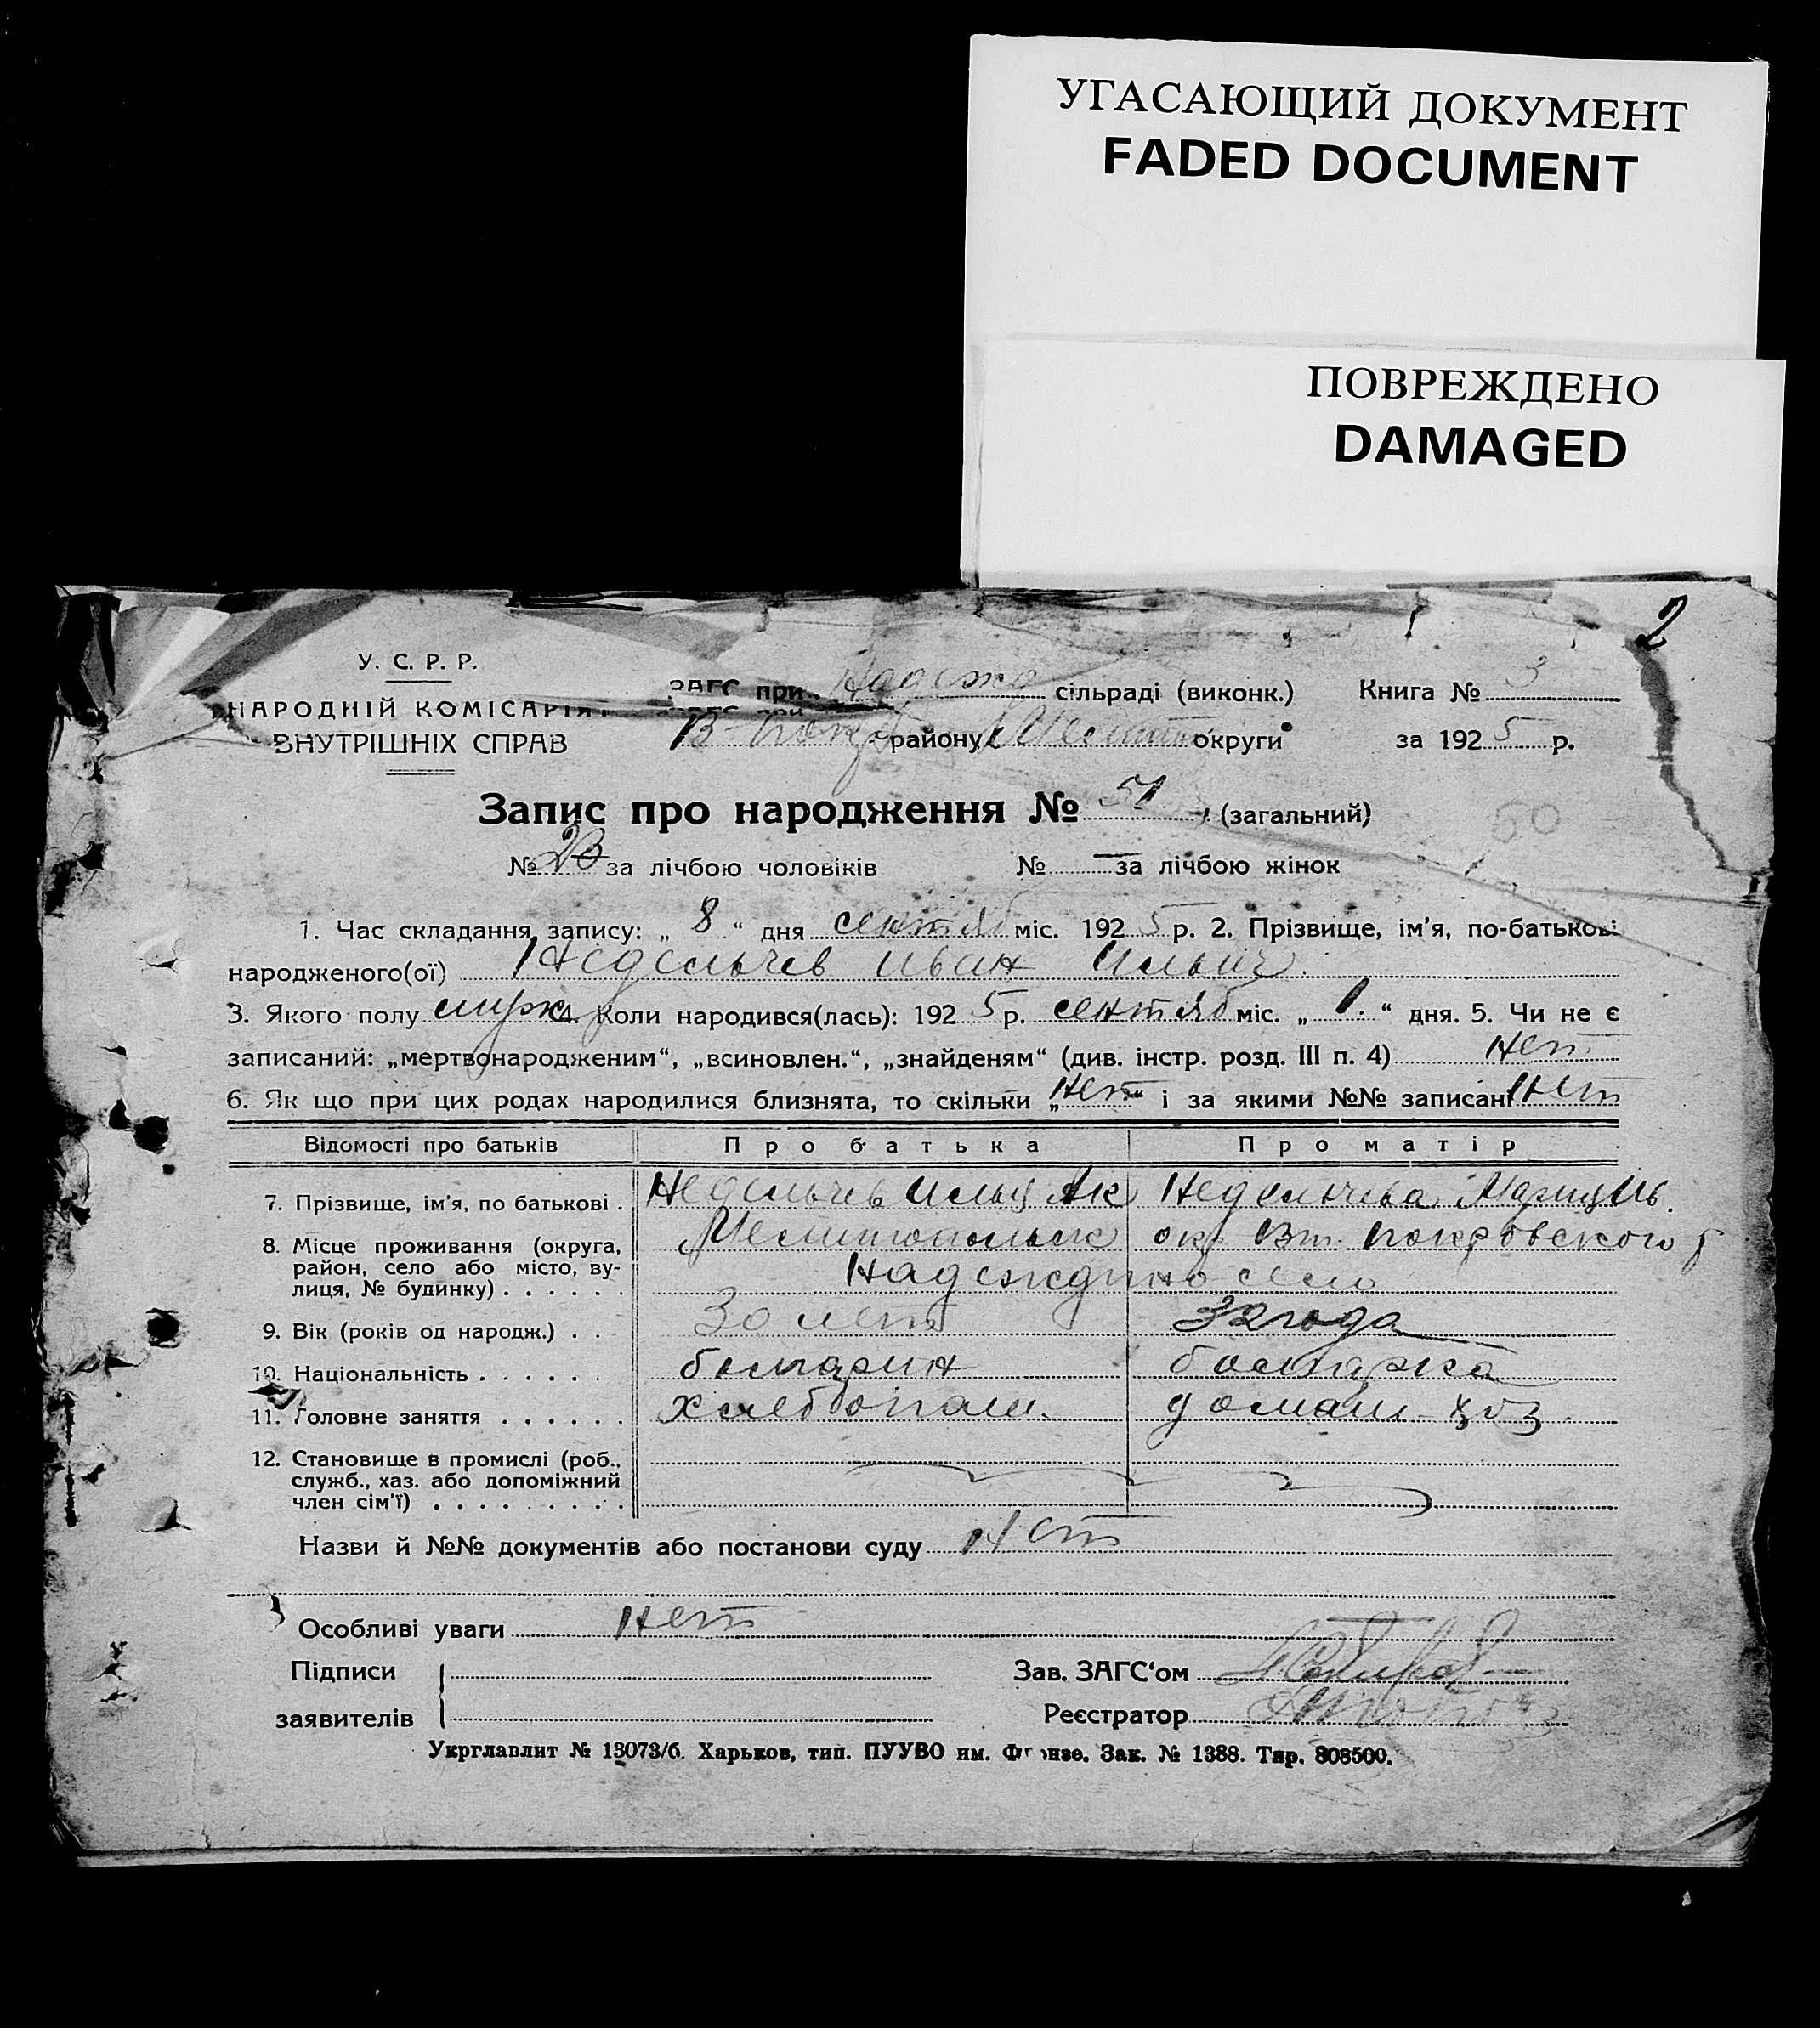 УГАСАЮЩИЙ ДОКУМЕНТ
FADED DOCUMENT
ПОВРЕЖДЕНО
DAMAGED
2
У. С. Р. Р.
НАРОДНІЙ КОМІСАРІЯТ
ВНУТРІШНІХ СПРАВ
ЗАГС при Надежд сільраді (виконк.) Книга № 3
В-Покр району Мелит округи за 1925 р.
Запис про народження № 51 (загальний)
60
№ 23 за лічбою чоловіків № — за лічбою жінок
1. Час складання запису: „ 8 “ дня сентяб міс. 1925 р. 2. Прізвище, ім'я, по-батькові
народженого(ої) Недельчев Иван Ильич.
3. Якого полу 4. Коли народився(лась): 1925 р. сентяб міс. „ 1. “ дня. 5. Чи не є
записаний: „мертвонародженим“, „всиновлен.“, „знайденям“ (див. інстр. розд. III п. 4) нет
6. Як що при цих родах народилися близнята, то скільки „нет“ і за якими №№ записані нет
Відомості про батьків Про батька Про матір
7. Прізвище, ім'я, по батькові . Недельчев Илья Недельчева Мария Ив.
8. Місце проживання (округа, Мелитопольск окр Вт. Покровского р
район, село або місто, ву-
лиця, № будинку) . . . . . . Надеждино село
9. Вік (років од народж.) . . 30 лет 32 года
10. Національність . . . . . . болгарин болгарка
11. Головне заняття . . . . . . хлебопаш. домаш хоз.
12. Становище в промислі (роб.,
служб., хаз. або допоміжний
член сім'ї) . . . . . . . . .
Назви й №№ документів або постанови суду нет
Особливі уваги нет
Підписи Зав. ЗАГС‘ом
заявителів Реєстратор
Укрглавлит № 13073/б. Харьков, тип. ПУУВО им. Фрунзе. Зак. № 1388. Тир. 808500.